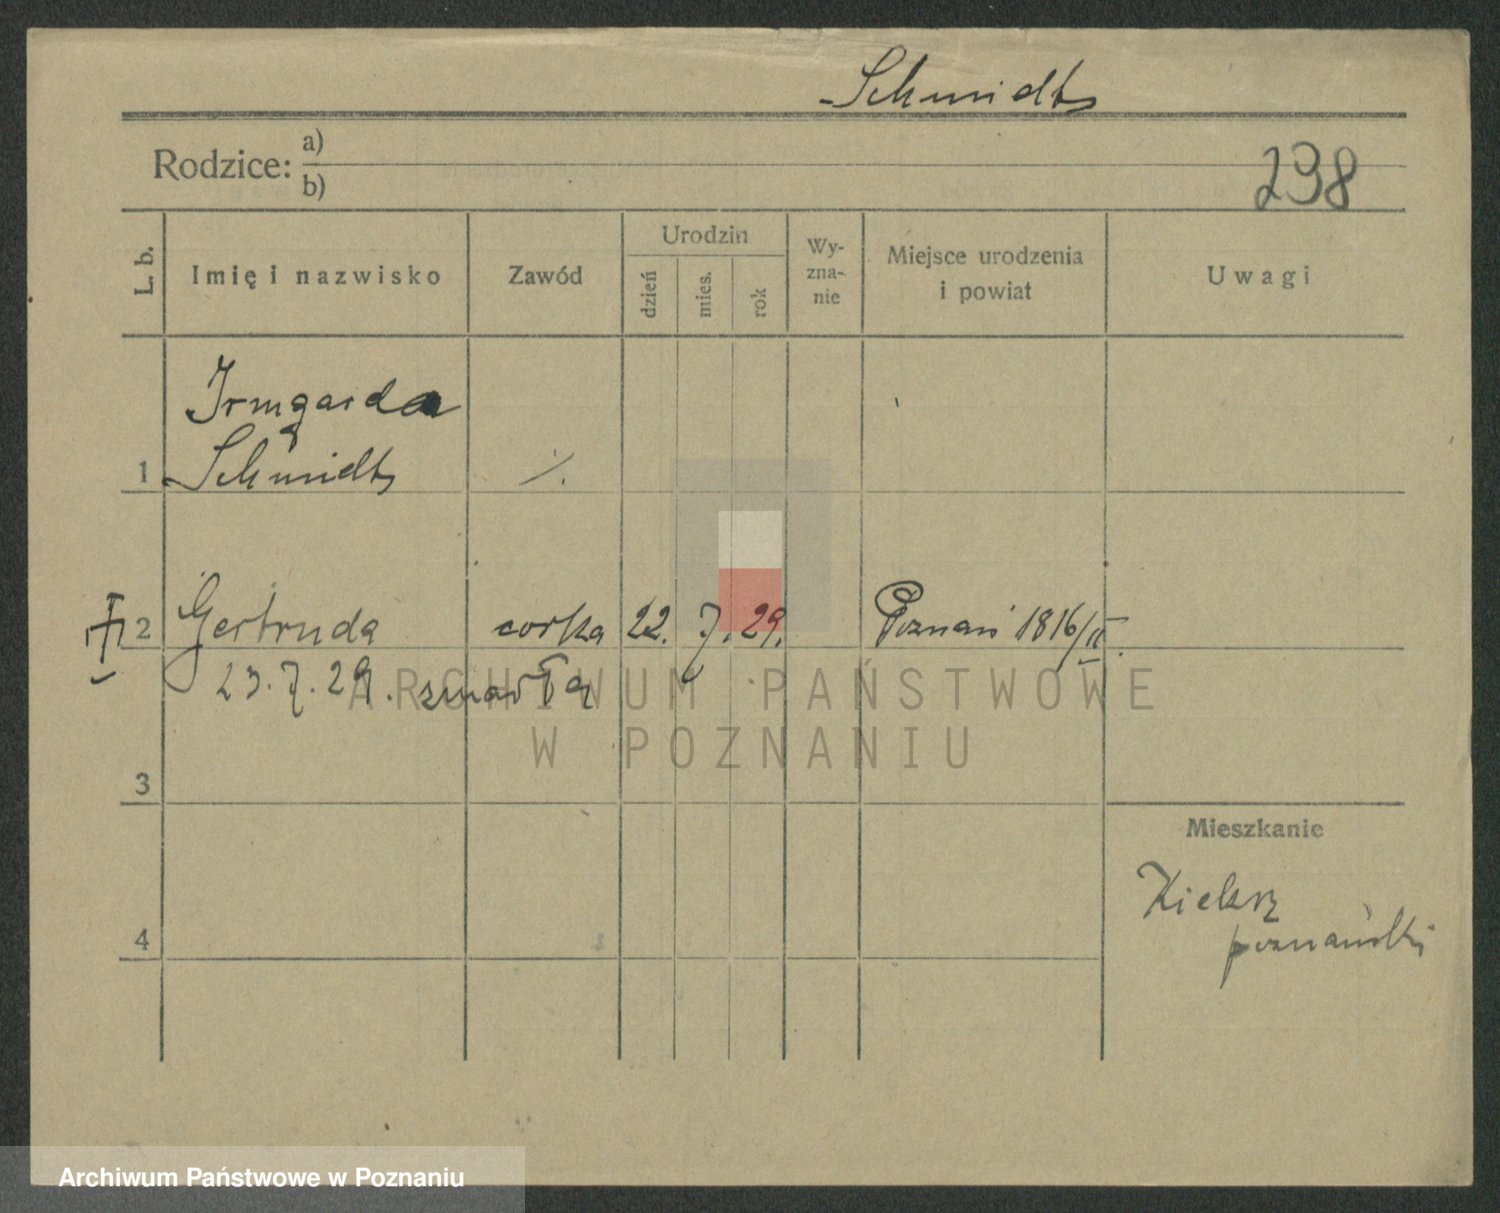 Schmidt
Rodzice: a)
b)
238
L. b.
Imię i nazwisko
Zawód
Urodzin
dzień
mies.
rok
Wy-
zna-
nie
Miejsce urodzenia
i powiat
Uwagi
Irmgarda
1 Schmidt ./.
2 Gertruda corka 22. 7. 29. Poznań 1816/II.
23.7.29. zmarła
ARCHIWUM PAŃSTWOWE
W POZNANIU
3
Mieszkanie
Kiekrz
poznański
4
Archiwum Państwowe w Poznaniu